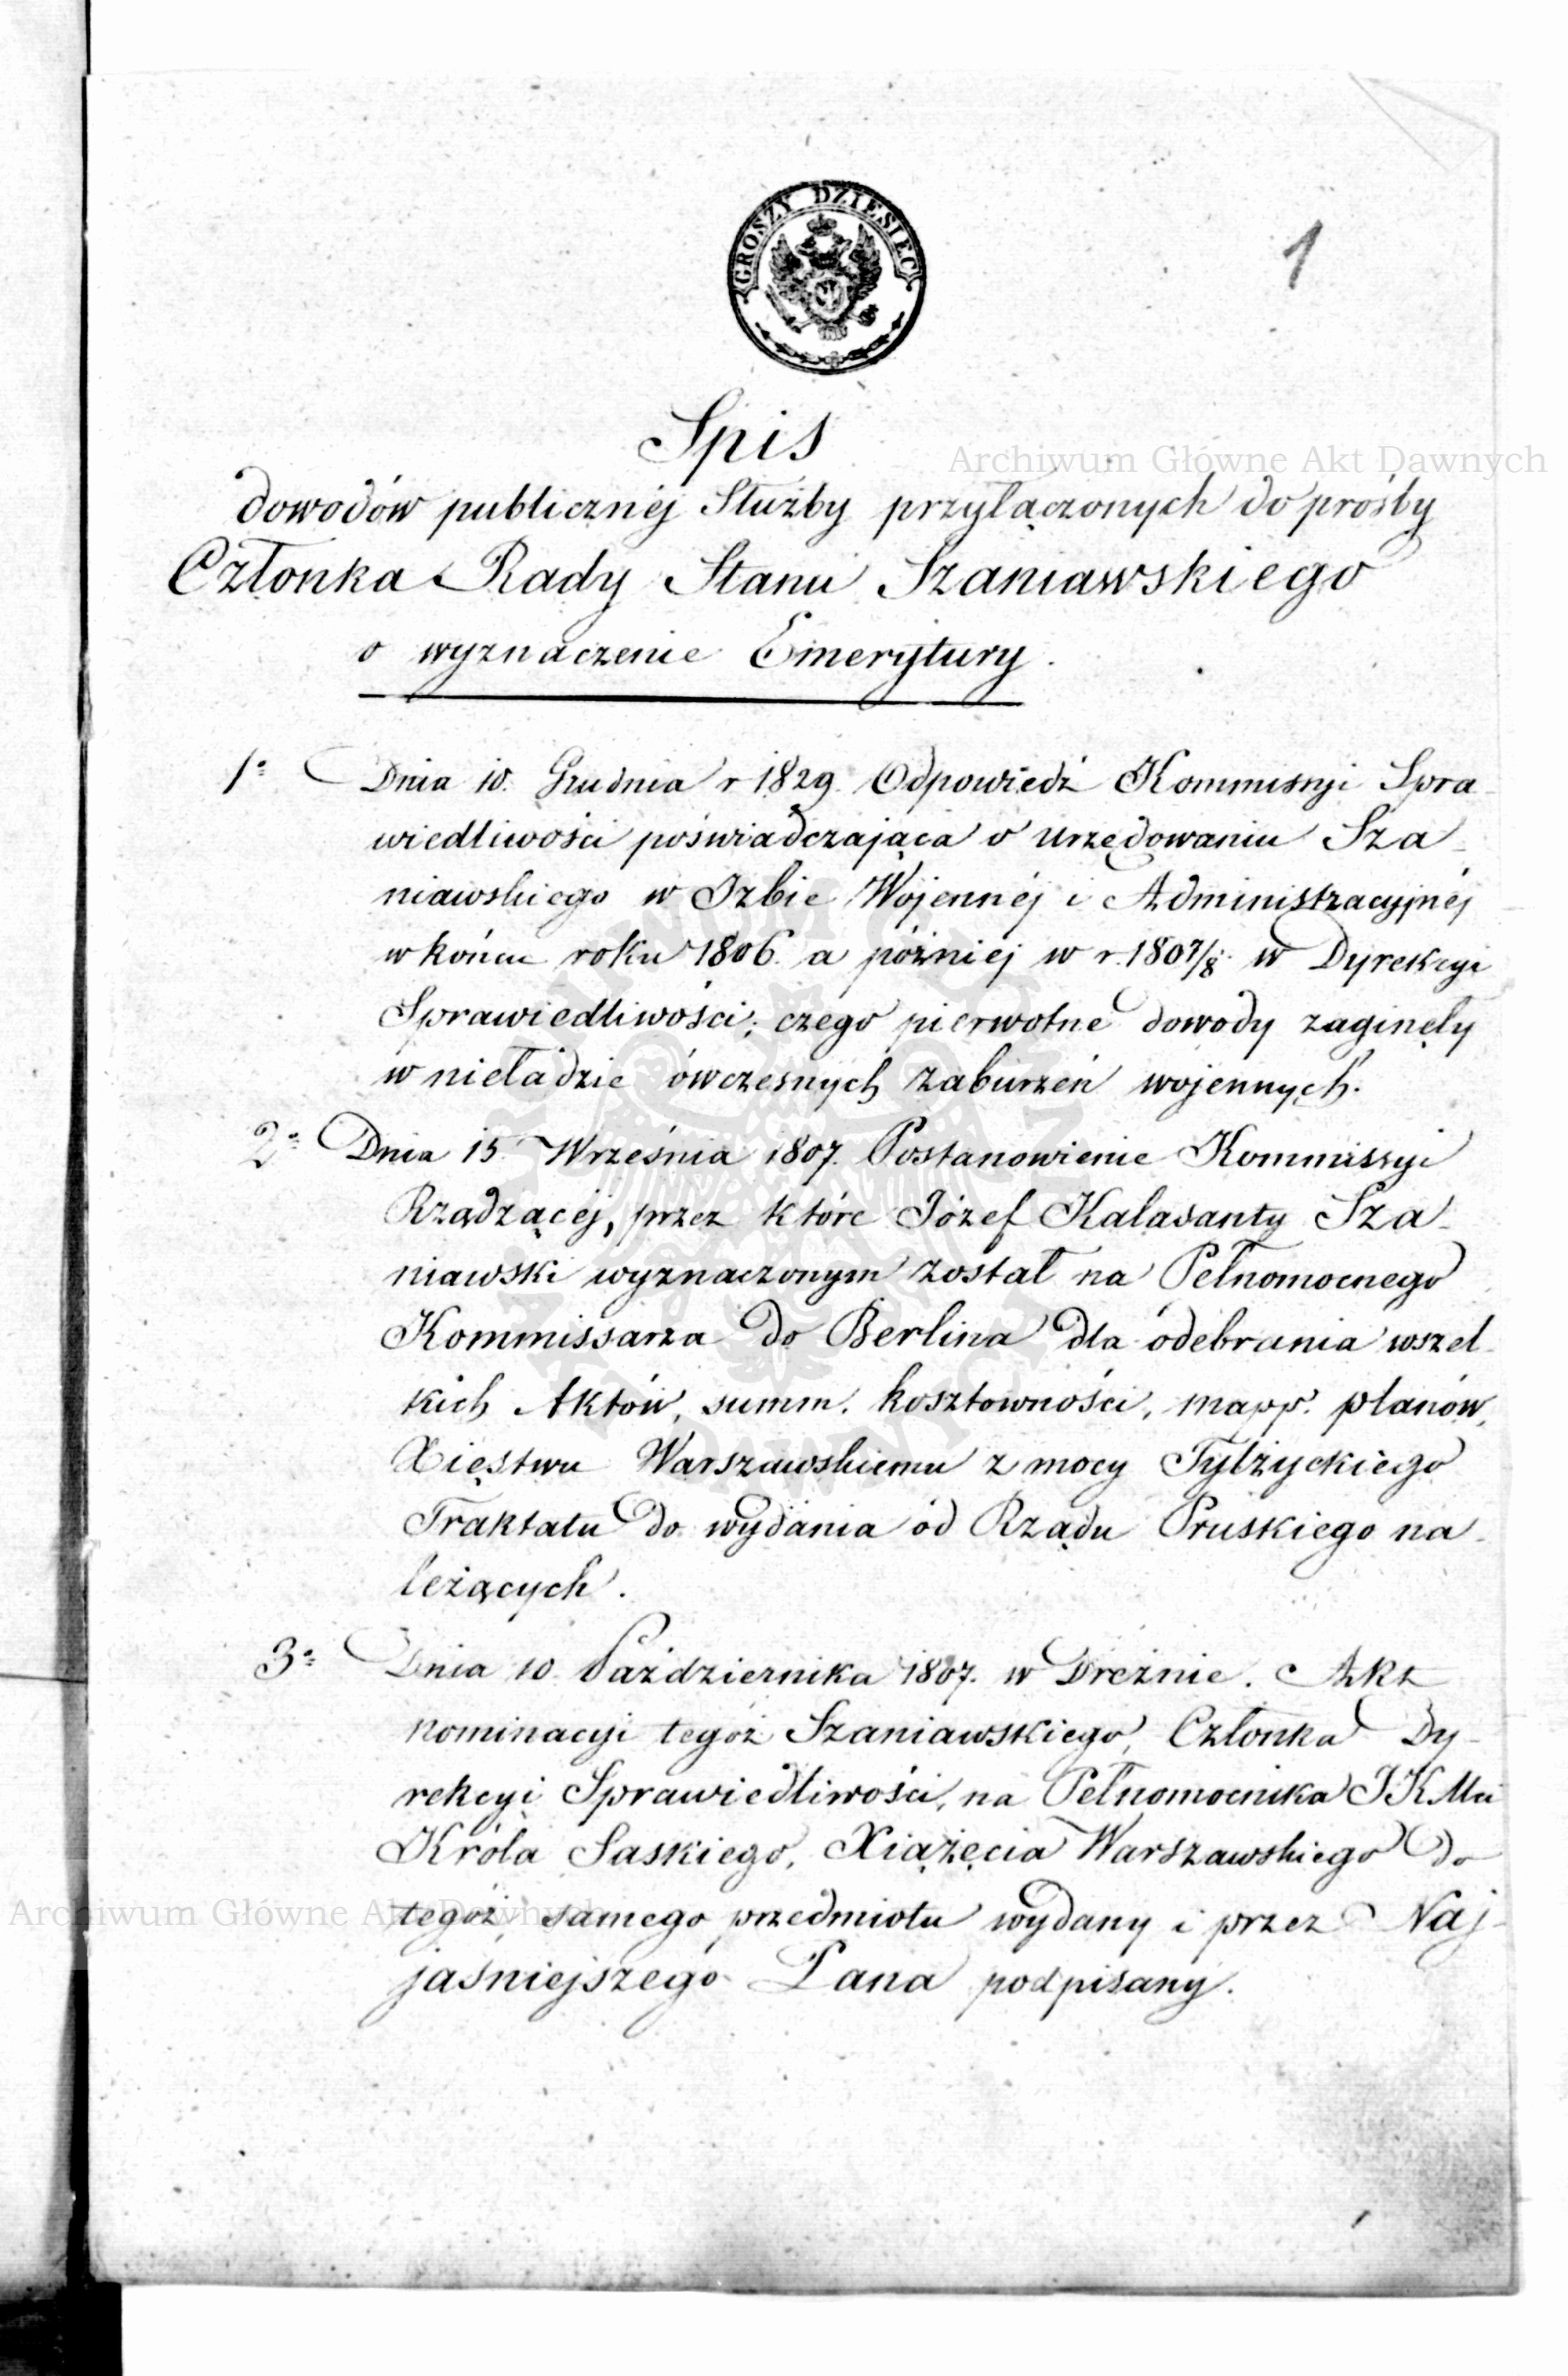 GROSZY DZIESIĘC
1
Spis
Archiwum Główne Akt Dawnych
dowodów publicznéj Służby przyłączonych do prośby
Członka Rady Stanu Szaniawskiego
o wyznaczenie Emerytury.
1o Dnia 10. Grudnia r 1829. Odpowiedź Kommissyi Spra-
wiedliwości poświadczająca o urzędowaniu Sza-
niawskiego w Izbie Wojennéj i Administracyjnéj
w końcu roku 1806. a późniéj w r. 1807/8. w Dyrekcyi
Sprawiedliwości; czego pierwotne dowody zaginęły
w nieładzie ówczesnych zaburzeń wojennych.
2o Dnia 15 Września 1807. Postanowienie Kommissyi
Rządzącéj, przez które Józef Kalasanty Sza-
niawski wyznaczonym został na Pełnomocnego
Kommissarza do Berlina dla odebrania wszel-
kich Aktów, summ, kosztowności, mapp, planów,
Xięstwu Warszawskiemu z mocy Tylżyckiego
Traktatu do wydania od Rządu Pruskiego na-
leżących.
3o Dnia 10 Października 1807. w Dreźnie. Akt
nominacyi tegoż Szaniawskiego, Członka Dy-
rekcyi Sprawiedliwości, na Pełnomocnika J K Mci
Króla Saskiego, Xiążęcia Warszawskiego do
Archiwum Główne Akt Dawnych
tegoż samego przedmiotu wydany i przez Naj-
jaśniejszego Pana podpisany.